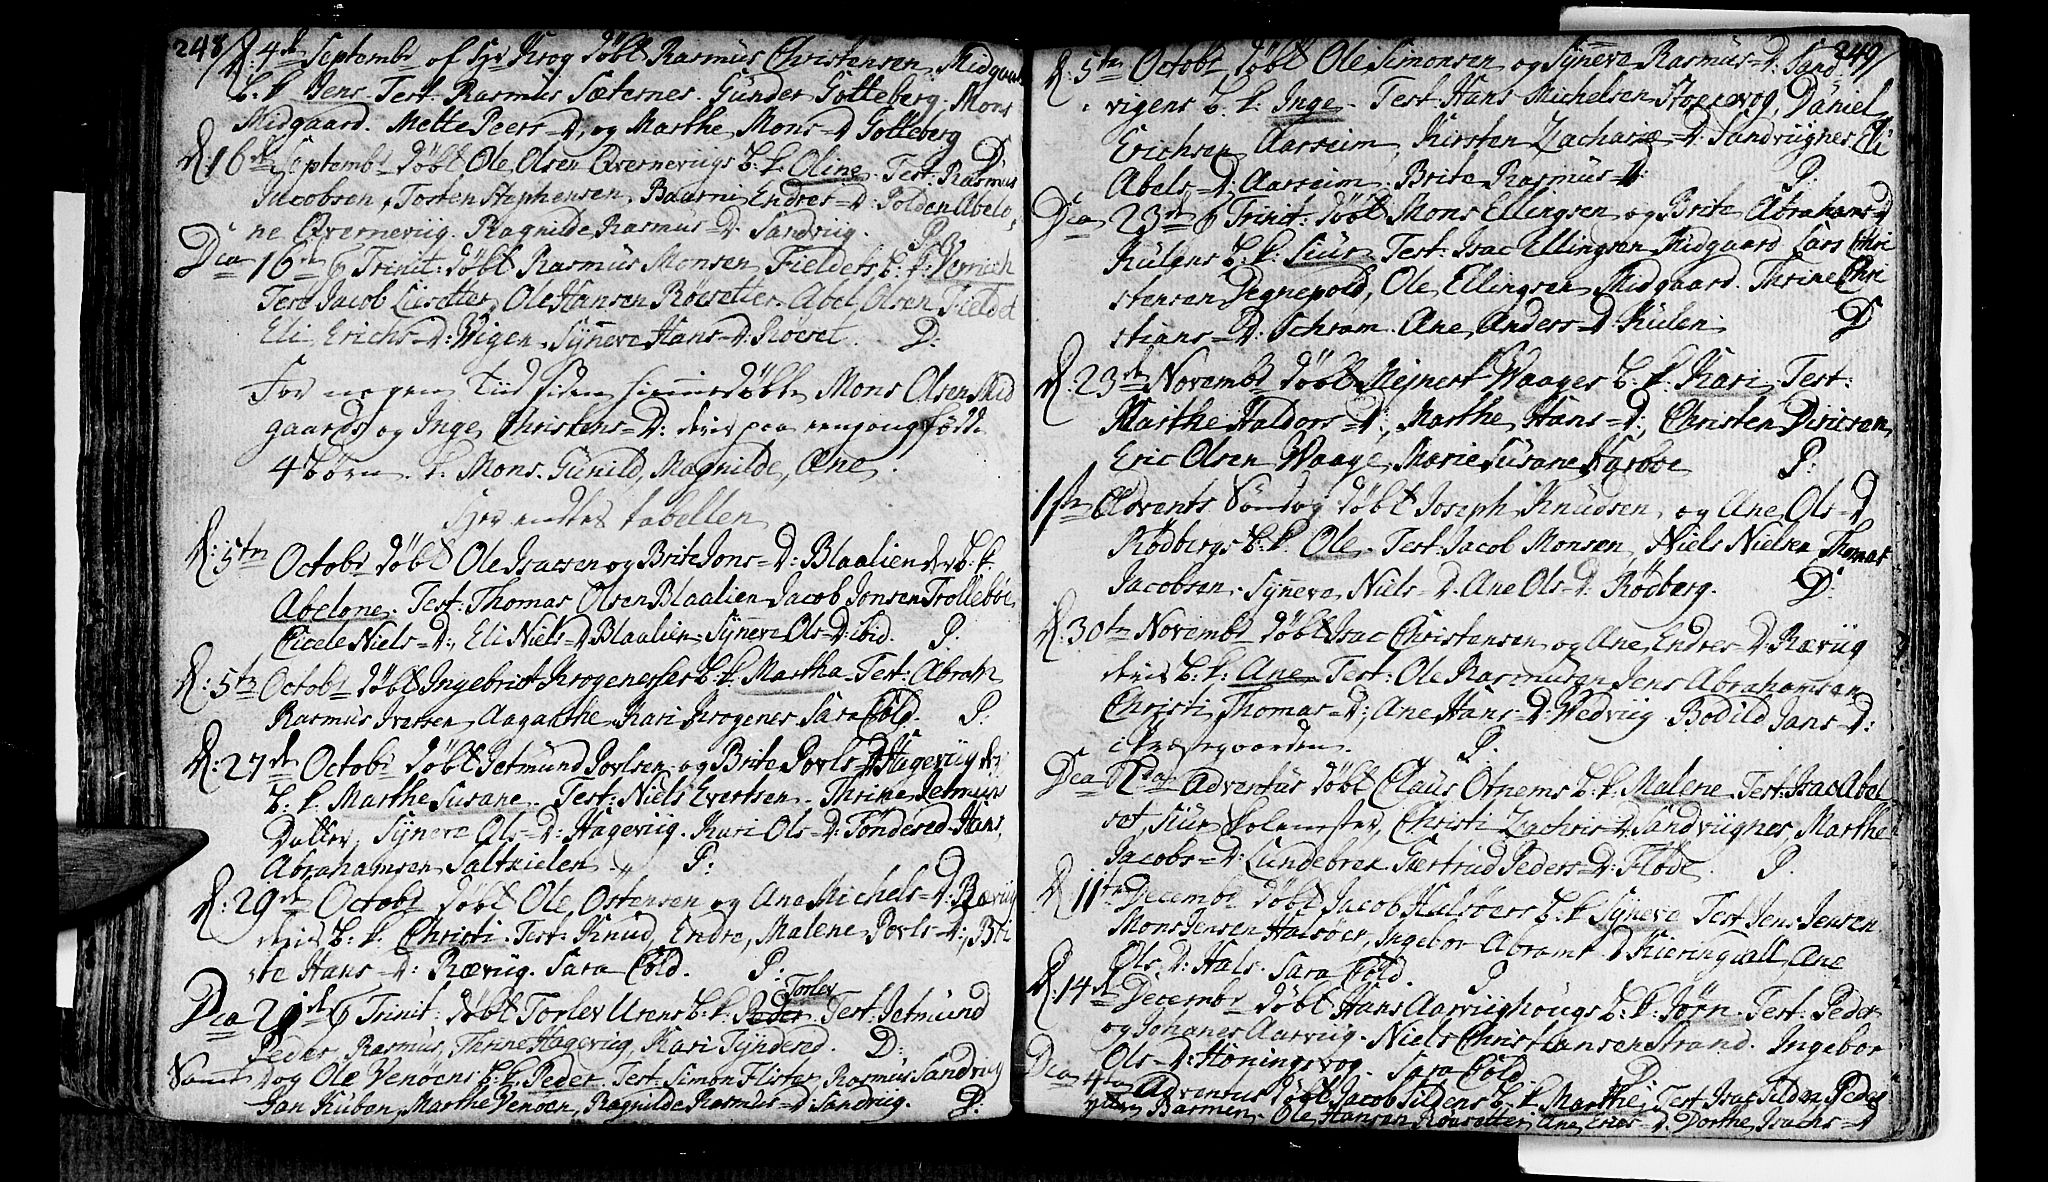 248
D: 4de Septembr of Hr Krog döbt Rasmus Christensen Midgaards
b: k Jens. Test: Rasmus Sæternes. Gunder Gotteberg. Mons
Midgaard. Mette Peers=D, og Marthe Mons=D Gotteberg
D: 16de Septembr döbt Ole Olsen Qverneviigs b: k Oline. Test: Rasmus
Jacobsen, Tosten Stephensen, Baarni Endres=D: Polden Abelo-
ne Qverneviig. Ragnilde Rasmus=D. Sandviig. P.
Dca 16de 6 Trinit: döbt Rasmus Monsen Fielders b: k:
Test: Jacob Lisetter, Ole Hansen Röesetter. Abel Olsen Fieldet
Eli Erichs=D: Wigen. Synneve Hans=D: Röeset. D:
For nogen Tiid siden hiemmedöbte Mons Olsen Mid
gaards og Inge Christens=D: deris paa eengang födde
4 börn. k. Mons. Gunild, Magnilde, Ane
Her endtes tabellen
D: 5te Octobr döbt Ole Isacsen og Brite Jons=D: Blaalien der b: k.
Abelone. Test: Thomas Olsen Blaalien Jacob Jonsen Trolleböe
Cicele Niels=D:, Eli Niels=D Blaalien Synneve Ols=D: ibid. P:
D: 5te Octobr döbt Ingebrict Krogenesses b: k. Martha. Test: Abrah
Rasmus Iversen Aagaathe Kari Krogenes Sara Cold. P:
D: 27de Octobr döbt Jetmund Povlsen og Brite Povls=D Hageviig der
b: k. Marthe Susane. Test: Niels Evertsen. Thrine Jetmun
Datter, Synneve Ols=D: Hageviig. Kari Ols=D: Töndesed Hans
Abrahamsen Saltkielen. P:
D: 29de Octobr döbt Ole Ostensen og Ane Michels=D:Ræviig
deris b: k. Christi. Test: Knud, Endre, Malene Povls=D:, Bri
te Hans=D: Ræviig. Sara Cold. P:
Torlev
Dca 21de 6 Trinit: döbt Torlev Urens b: k: Peder. Test: Jetmund
Peder, Rasmus, Thrine Hageviig, Kari Tyndesed. D:
Samme Dag Ole Venöens b: k. Peder. Test: Simon Flister, Rasmus Sandviig
Jan Kuben, Marthe Venöen, Ragnilde Rasmus=D: Sandviig. P:
249
D: 5te Octobr döbt Ole Simonsen og Synneve Rasmus=D: Sand
vigens b. k: Inge. Test: Hans Michelsen Daniel
Erichsen Aarseim, Kirsten Zachariæ=D: Sandviignes Eli
Abels=D: Aarseim. Brite Rasmus=D: P:
Dca 23de 6 Trinit: döbt Mons Ellingsen og Brite Abrahams=d
Kulens b. k: Siur. Test: Isac Ellingsen Midgaard Lars Chri
stensen Degnepold, Ole Ellingsen Midgaard. Thrine Chri
stians=D: Schram. Ane Anders=D: Kulen. D
D: 23de Novembr döbt Mejnert Waages b: k: Kari. Test:
Marthe Haldors=D:, Marthe Hans=D:, Christen Diricsen
Eric Olsen Waage, Marie Susane Harboe P:
1ste Advents Söndag döbt Joseph Knudsen og Ane Ols=D
Rödbergs b. k. Ole. Test: Jacob Monsen Niels Nielsen Thomas
Jacobsen. Synneve Niels=D. Ane Ols=D: Rödberg. D:
D: 30te Novembr döbt Isac Christensen og Ane Endres=D: Ræviig
deris b. k: Ane. Test: Ole Rasmusen Jens Abrahamsen
Christi Thomas=D:, Ane Hans=D: Wedviig Bodild Jans=D:
i Præstgaarden. P.
Dca 2da Adventus döbt Claus Otnems b: k. Malene. Test: Isac Abel
set, Siur Christi Zachris=D: Sandviignes Marthe
Jacobs=D: Lundebrek Giertrud Peders=D: Flöde. P.
D 11te Decembr döbt Jacob Halsöers b. k. Synneve Test Jens Jensen
Mons Jensen Halsöer, Ingebor Abrams=D Kieringvall, Ane
Ols=D: Hals. Sara Cold. P
D. 14de Decembr döbt Hans Aarviighougs b. k: Jörn. Test: Peder
og Johanes Aarviig. Niels Christiansen Strand. Ingebor
Ols=D: Honingsvog. Sara Cold. D
Dca 4ta Adventus döbt Jacob Tildens b. k. Marthe. Test: Isac Tilden Peder
Barmen. Ole Hansen Röesetter, Ane Erics=D. Dorthe Isachs=D